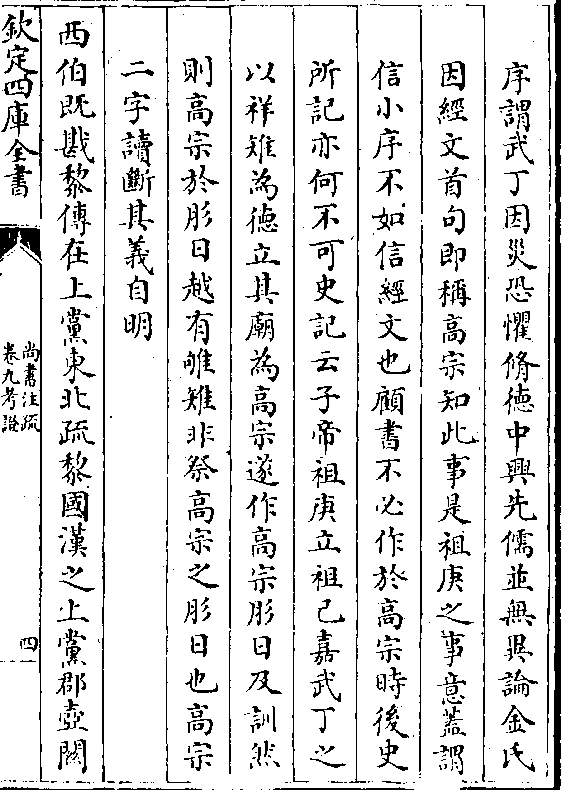 序謂武丁因災恐懼脩德中興先儒並無異論金氏
因經文首句即稱高宗知此事是祖庚之事意蓋謂
信小序不如信經文也顧書不必作於高宗時後史
所記亦何不可史記云子帝祖庚立祖己嘉武丁之
以祥雉為德立其廟為高宗遂作高宗肜日及訓然
則高宗於肜日越有雊雉非祭高宗之肜日也高宗
二字讀斷其義自明
西伯既戡黎傳在上黨東北疏黎國漢之上黨郡壺關
欽定四庫全書
尚書注疏
卷九考證
四